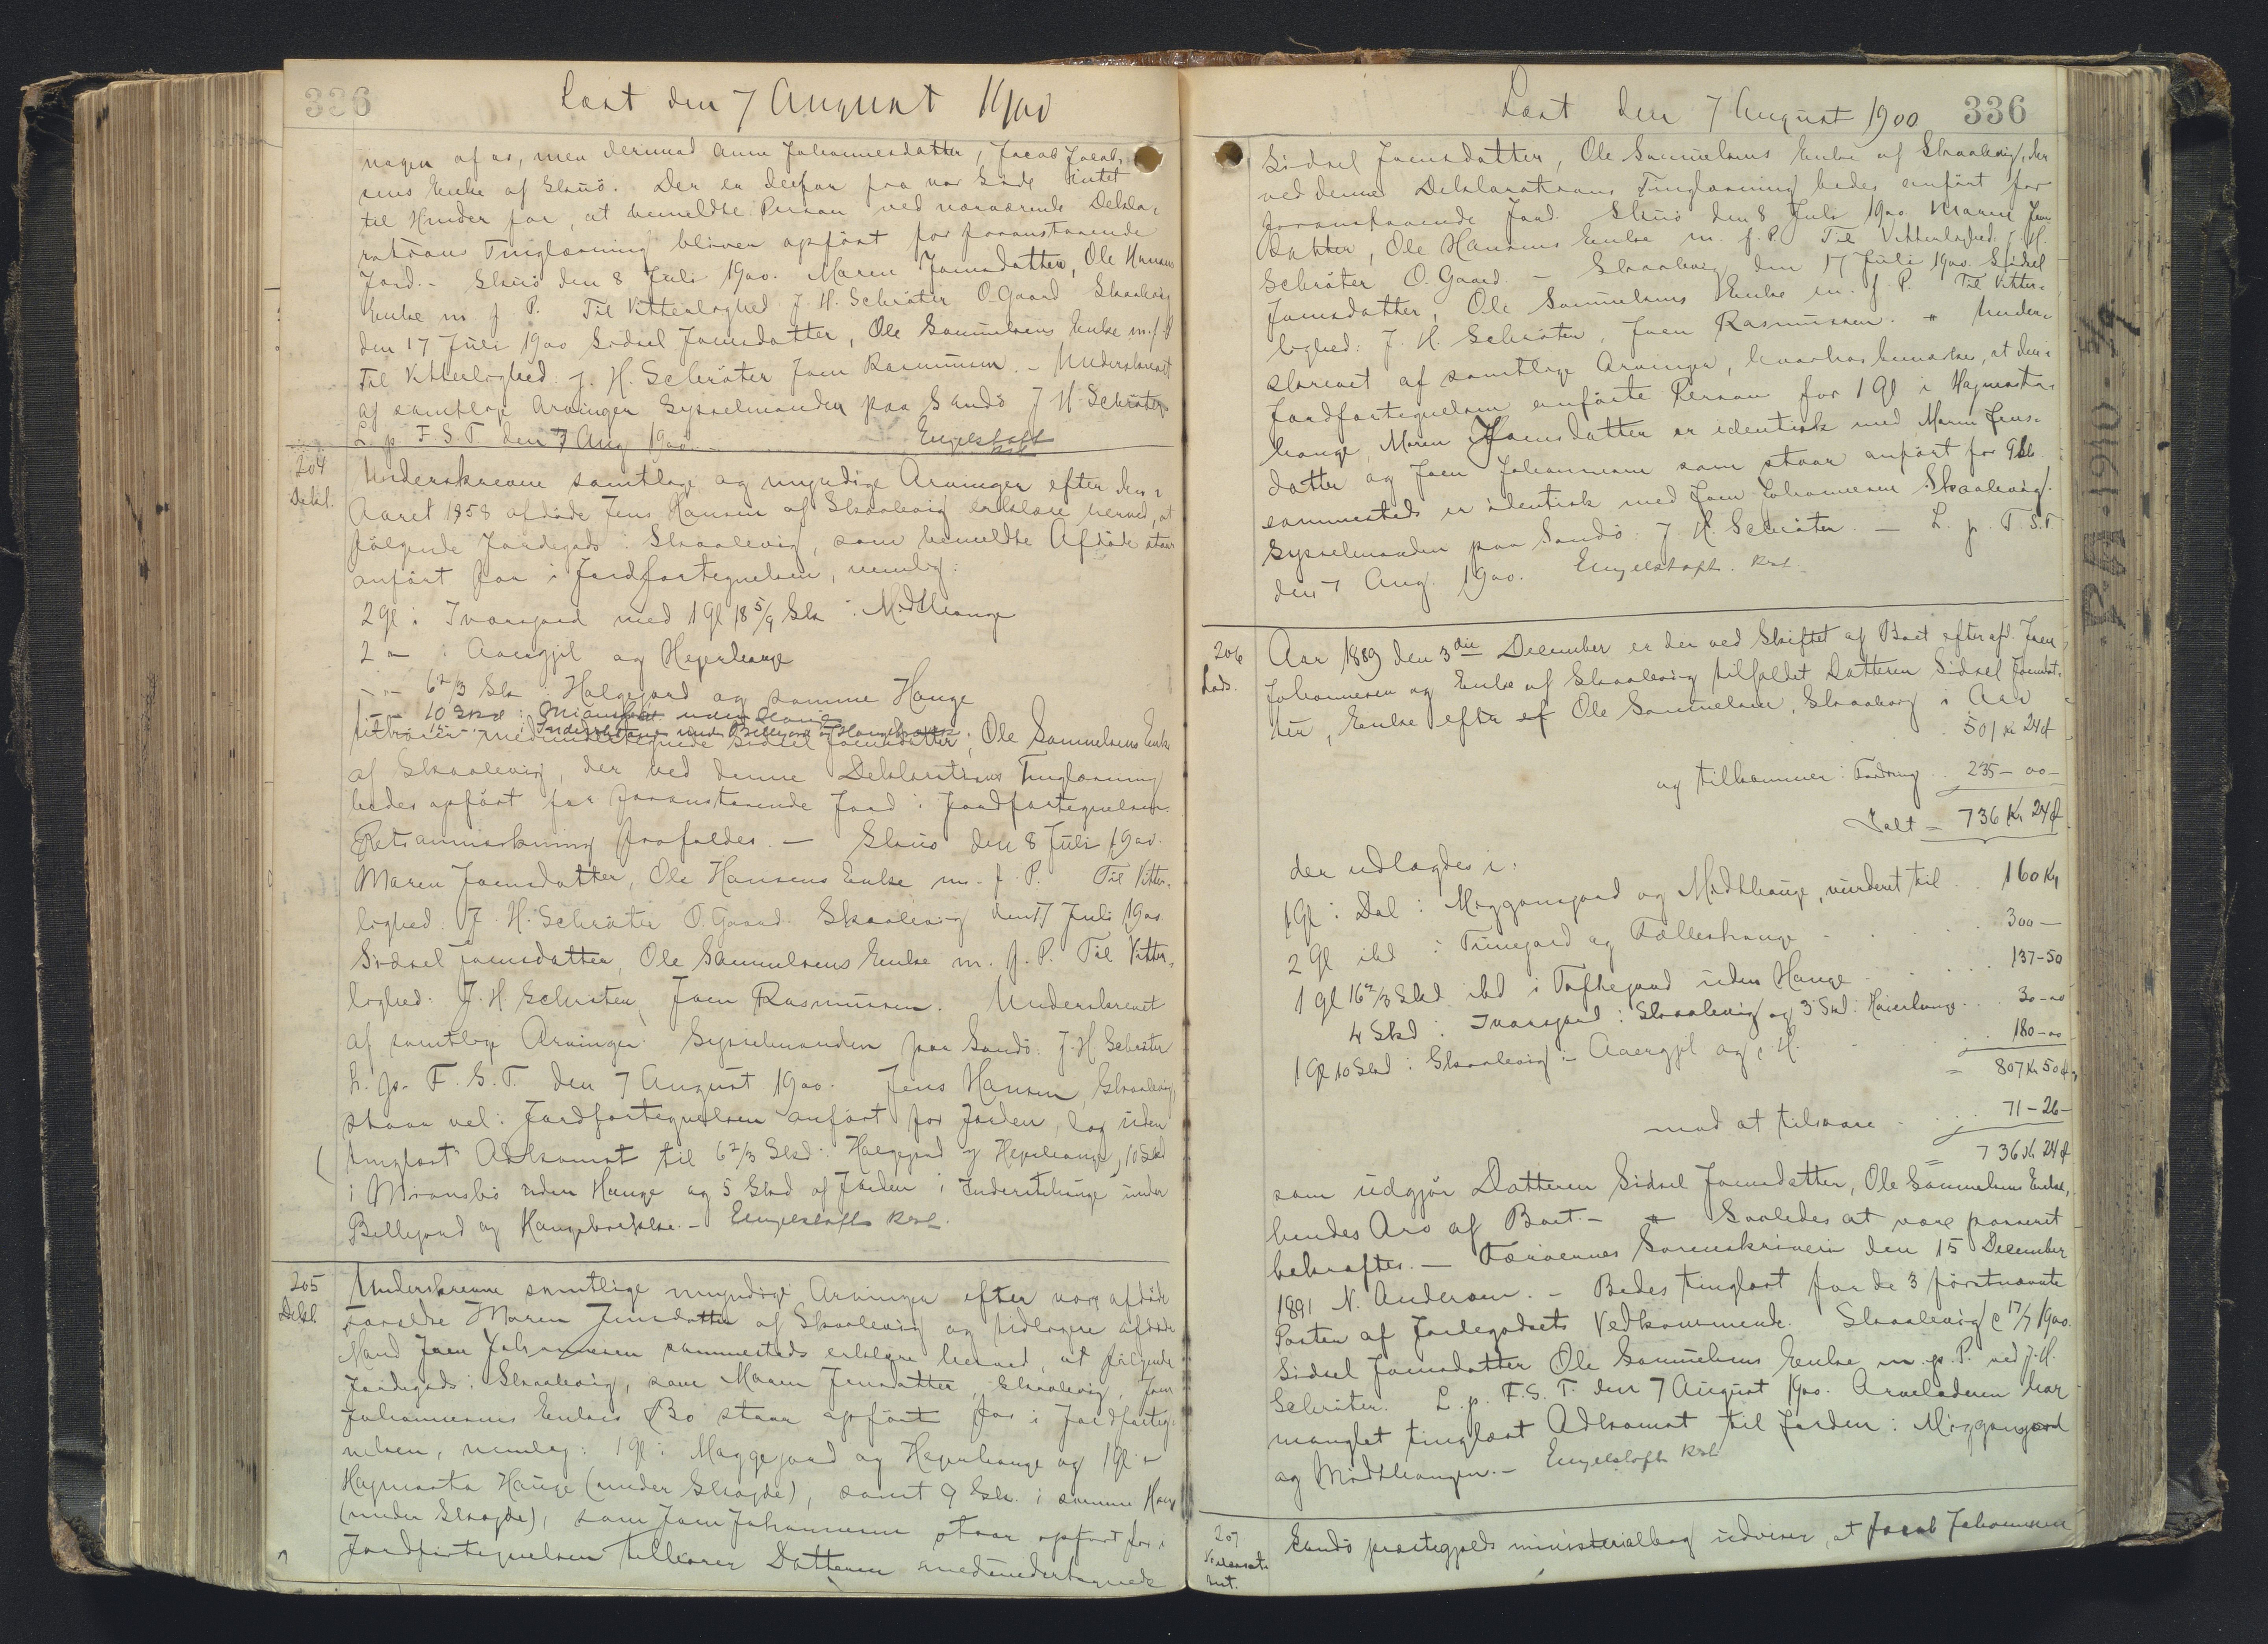 336
Læst den 7 August 1900
nogen af os, men derimod Anne Johannesdatter, Jacob Jacob-
sens Enke af Skuö. Der er derfor fra vor Side intet
til Hinder for, at bemeldte Person ved nærværende Dekla-
rations Tinglæsning bliver opfört for foranstaaende
Jord. - Skuö den 8 Juli 1900. Maren Joensdatter, Ole Hansens
Enke m. f. P. Til Vitterlighed J. H. Schröter O. Gaard Skaalevig
den 17 Juli 1900 Sidsel Joensdatter, Ole Samuelsens Enke m. f. P.
Til Vitterlighed: J. H. Schröter Joen Rasmussen. - Underskrevet
af samtlige Arvinger Sysselmanden paa Sandö J H Schröter
L. p. F. S. T. den 7 Aug 1900. Engelstoft
204
Dekl.
Underskrevne samtlige og myndige Arvinger efter den i
Aaret 1858 afdöde Jens Hansen af Skaalevig erklære herved, at
fölgende Jordegods i Skaalevig, som bemeldte Afdöde staar
anfört for i Jordfortegnelsen, nemlig:
2 Gl i Ivarsgard med 1 Gl 18 5/9 Sk i Midthauge
2 - i Aaergjil og Hejerhauge
- - 6 2/3 Sk i Halgegard og samme Hauge
- - 10 Skd i Miansbö uden Hauge
- 15 - Inderstehauge under Billegard og Haugebrække
tilhörer medundertegnede Sidsel Joensdatter, Ole Samuelsens Enke
af Skaalevig, der ved denne Deklarations Tinglæsning
bedes opfört for foranstaaende Jord i Jordfortegnelsen.
Retsanmærkning frafaldes. - Skuö den 8 Juli 1900.
Maren Joensdatter, Ole Hansens Enke m. f. P. Til Vitter-
lighed: J. H. Schröter O. Gaard. Skaalevig den 17 Juli 1900
Sidsel Joensdatter, Ole Samuelsens Enke m. f. P. Til Vitter-
lighed: J. H. Schröter, Joen Rasmussen. Underskrevet
af samtlige Arvinger. Sysselmanden paa Sandö: J. H. Schröter
L. p. F. S. T. den 7 August 1900. Jens Hansen, Skaalevig,
staar vel i Jordfortegnelsen anfört for Jorden, dog uden
tinglæst Adkomst til 6 2/3 Skd i Halgegard og Hejerhauge, 10 Skd
i Miansbö uden Hauge og 5 Skd af Jorden i Inderstehauge under
Billegard og Haugebrække. - Engelstoft Kst.
205
Dekl.
Underskrevne samtlige myndige Arvinger efter vore afdöde
Forældre Maren Jensdatter af Skaalevig og tidligere afdöde
Mand Joen Johannesen sammesteds erklære herved, at fölgende
Jordegods i Skaalevig, som Maren Jensdatter, Skaalevig, Joen
Johannesens Enkes Bo staar opfört for i Jordforteg-
nelsen, nemlig: 1 Gl i Maggegard og Hejerhauge og 1 Gl i
Hagmarka Hauge (under Skogde), samt 9 Sk. i samme Hauge
(under Skogde), som Joen Johannesen staar opfört for i
Jordfortegnelsen tilhörer Datteren medundertegnede
Læst den 7 August 1900 336
Sidsel Joensdatter, Ole Samuelsens Enke af Skaalevig, der
ved denne Deklarations Tinglæsning bedes anfört for
foranstaaende Jord. Skuö den 8 Juli 1900 Maren Joens
datter, Ole Hansens Enke m. f. P. Til Vitterlighed: J. H.
Schröter O. Gaard. - Skaalevig den 17 Juli 1900 Sidsel
Joensdatter, Ole Samuelsens Enke m. f. P. Til Vitter-
lighed: J. H. Schröter, Joen Rasmussen. Under-
skrevet af samtlige Arvinger, hvorhos bemærkes, at den i
Jordfortegnelsen anförte Person for 1 Gl i Hagmarka-
hauge, Maren Joensdatter er identisk med Maren Jens-
datter og Joen Johannesen som staar anfört for 9 Sk
sammesteds er identisk med Joen Johannesen Skaalevig.
Sysselmanden paa Sandö: J. H. Schröter. - L. p. F. S. T.
den 7 Aug. 1900. Engelstoft. Kst.
206
Lods.
Aar 1889 den 3die December er der ved Skiftet af Boet efter afd. Joen
Johannesen og Enke af Skaalevig tilfaldet Datteren Sidsel Joensdat-
ter, Enke efter Ole Samuelsen, Skaalevig i Arv
501 Kr 24 Ø
og tilkommer i Fordring 235 - 00 -
Ialt = 736 Kr 24 Ø
der udlagdes i:
1 Gl i Dal i Moggansgard og Midthauge, vurderet til 160 Kr
2 Gl ibd i Trinegard og Fælleshauge 300 -
1 Gl 16 2/3 Skd ibd i Toftegard uden Hauge 137 - 50
4 Skd i Ivarsgard i Skaalevig og 3 Skd i Haierhauge 30 - 00
1 Gl 10 Skd i Skaalevig i Aaergjil og i H. 180 - 00
= 807 Kr 50 Ø
mod at tilsvare 71 - 26 -
= 736 Kr 24 Ø
som udgjör Datteren Sidsel Joensdatter, Ole Samuelsens Enke,
hendes Arv af Boet. - Saaledes at være passeret
bekræftes. - Færöernes Sorenskriveri den 15 December
1891 N. Andersen. - Bedes tinglæst for de 3 förstnævnte
Poster af Jordegodsets Vedkommende. Skaalevig d 17/7 1900.
Sidsel Joensdatter Ole Samuelsens Enke m. f. P. ved J. H.
Schröter. L. p. F. S. T. den 7 August 1900. Arveladeren har
manglet tinglæst Adkomst til Jorden i Moggansgard
og Midthaugen. - Engelstoft Kst
207
Sandö præstegjelds ministerialbog udviser, at Jacob Johannesen